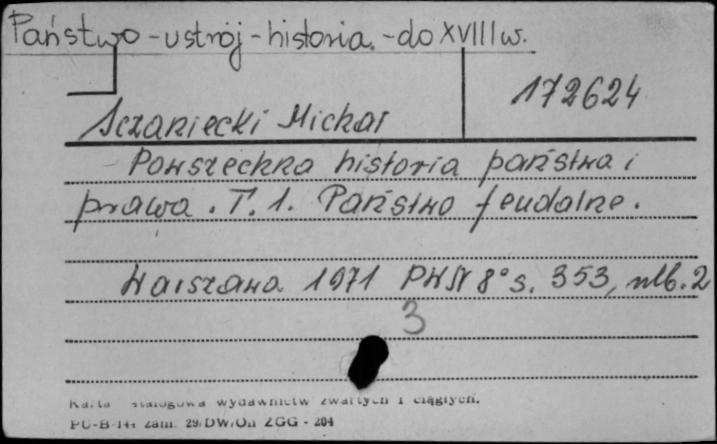 Państwo - ustrój - historia. - do XVIII w.
172624
Sczaniecki Michał
Powszechna historia państwa i
prawa. T. 1. Państwo feudalne.
Warszawa 1971 PWN 8° s. 353, nlb. 2
3
Karta katalogowa wydawnictw zwartych i ciągłych.
PU-B-144 zam. 29/DW/On ZGG - 204